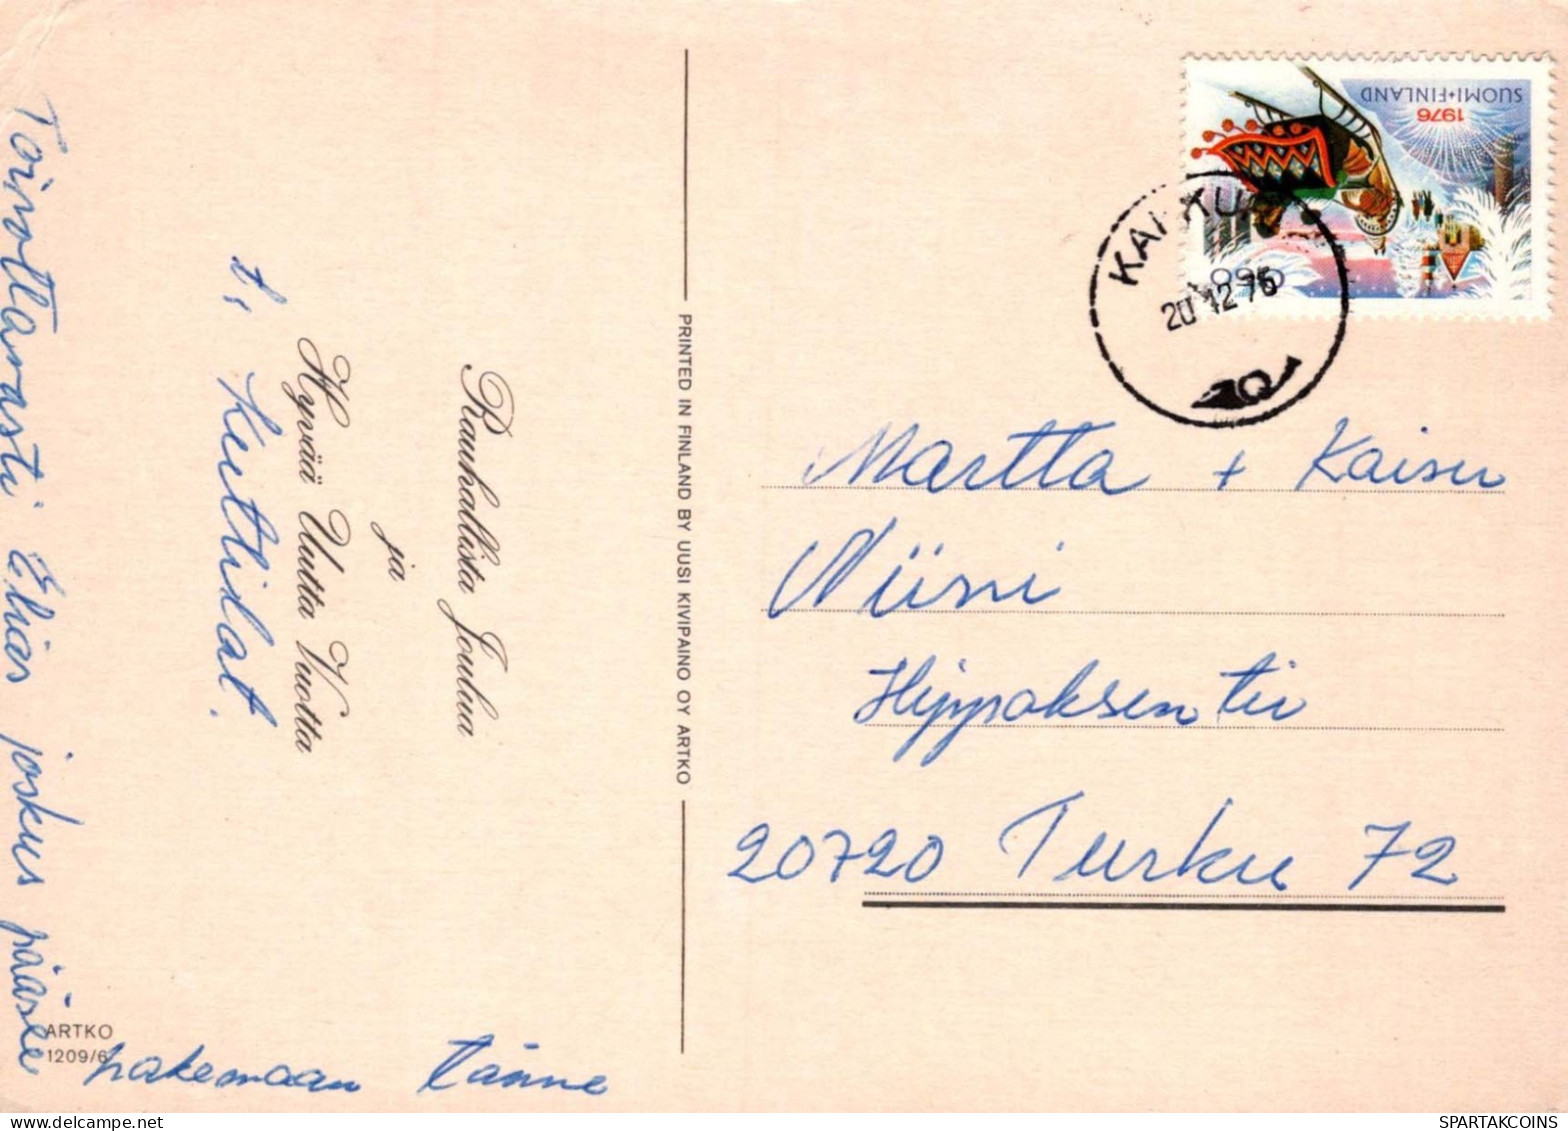 Rauhallista Joulua
ja
Hyvää Uutta Vuotta
t,
Toivottavasti Elias joskus pääsee
hakemaan tänne
ARTKO
1209/6
PRINTED IN FINLAND BY UUSI KIVIPAINO OY ARTKO
1976
SUOMI•FINLAND
20 12 76
Martta + Kaisu
Niini
Hippoksentie
20720 Turku 72
SPARTAKCOINS
SPARTAKCOINS.COM